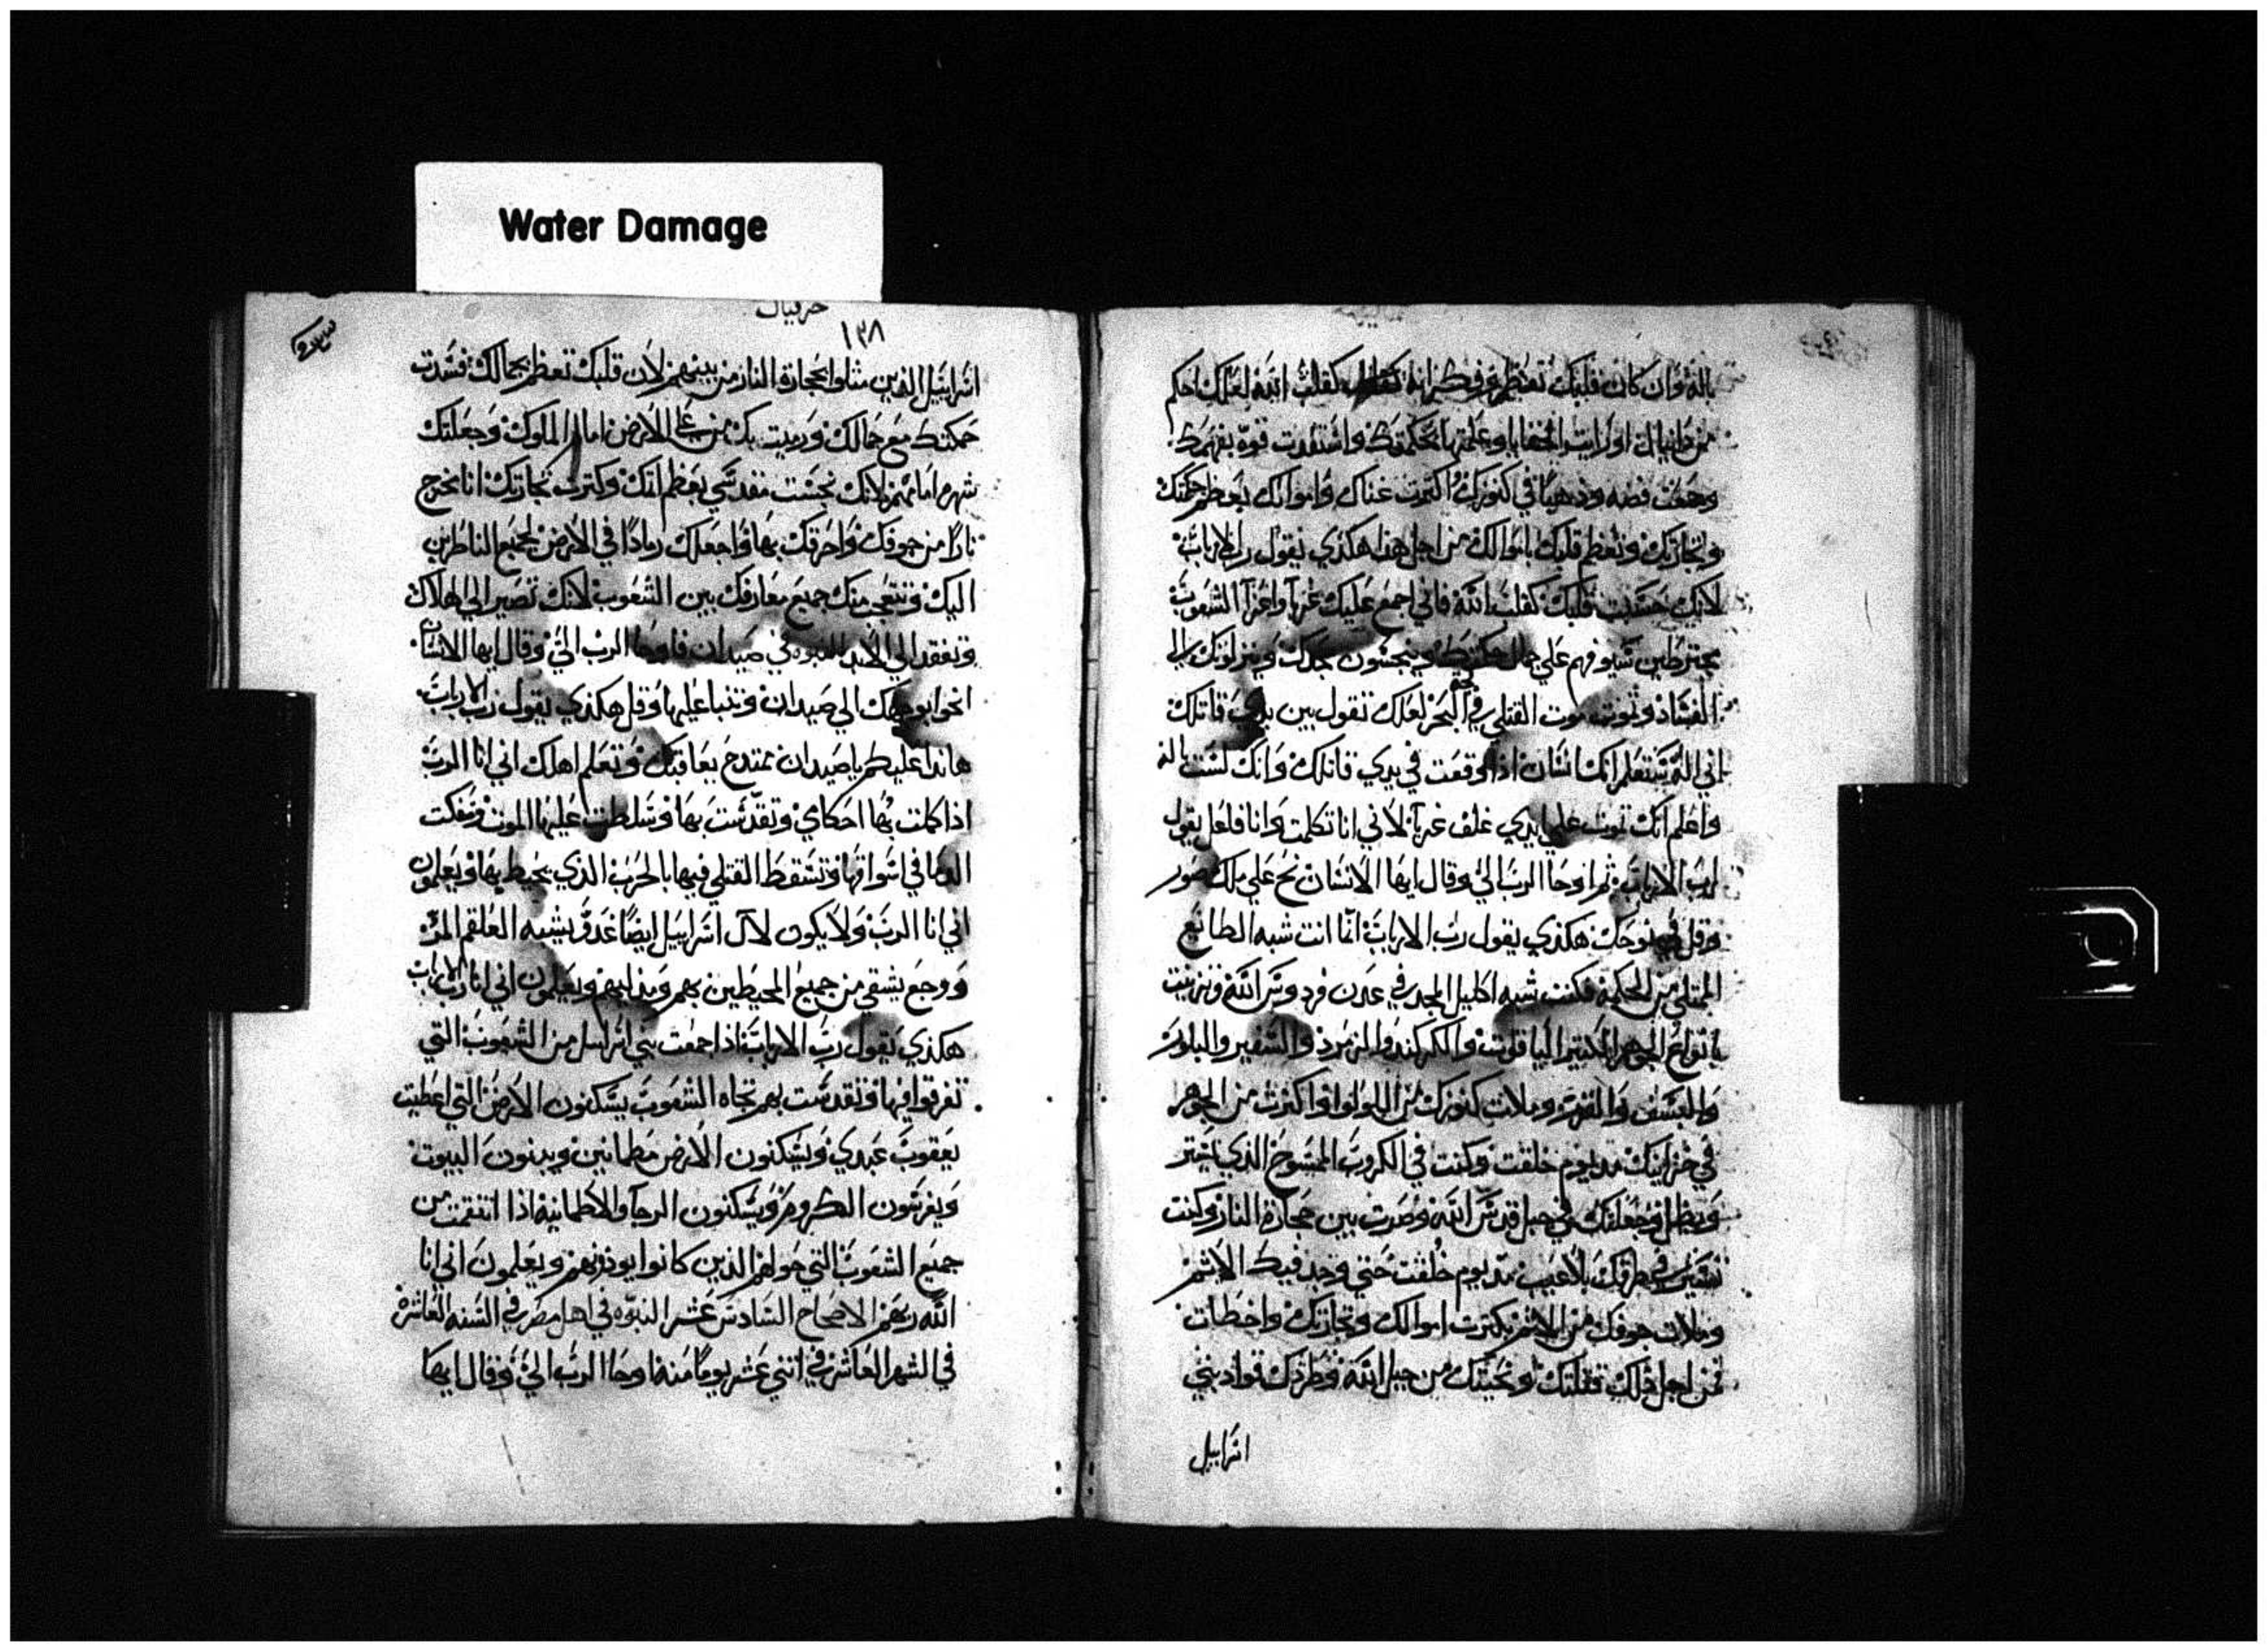 Water Damage
باله وان كان قلبك تعظم وفكر انه كقلب الله لعلك احكم
من دانيال او رايت الخفايا وعلمتها بحكمتك واستفدت قوة بفهمك
وجمعت فضه وذهبًا في كنوزك واكثرت غناك واموالك بعظم حكمتك
وتجارتك وتعظم قلبك باموالك من اجل هذا هكذي يقول رب الارباب
لانك حسبت قلبك كقلب الله فاني اجمع عليك غربآ واعزآ الشعوب
سيوفهم علي جمال حكمتك وينجسون مجدك وينزلونك الي
الفساد وتموت موت القتلي في البحر لعلك تقول بين يدي قاتلك
اني الله ستعلم انك انسان اذا وقعت في يدي قاتلك وانك لست اله
واعلم انك تموت علي ايدي غلف غربآ لاني انا تكلمت وانا فاعل يقول
رب الارباب ثم اوحا الرب الي وقال ايها الانسان نح علي ملك صور
وقل في نوحك هكذي يقول رب الارباب انما انت شبه الطابع
الممتلي من الحكمة فكنت شبه اكليل المجد في عدن فردوس الله وتزينت
بانواع الجوهر الكثير الياقوت والكركند والزمرد والسفير والبلور
وملات كنوزك من اللولوا واكثرت من الجوهر
في خزاينك مند يوم خلقت وكنت في الكروب الممسوح الذي اختر
وجعلتك في جبل قدس الله وصرت بين حجارة النار وكنت
تسير في طرقك بلا عيب مند يوم خلقت حتي وجد فيك الاثم
وملات جوفك من الاثم بكثرت اموالك وتجارتك واخطات
فمن اجل ذلك قتلتك ونحيتك من جبل الله وطردك قواد بني
اسراييل
حزقيال
١٣٨
اسراييل الذين مثلوا بحجارة النار من بينهم لان قلبك تعظم بجمالك فسدت
حكمتك مع جمالك ورميت بك علي الارض امام الملوك وجعلتك
شهره امامهم لانك نجست مقدسي بعظم اثمك وكثرت تجارتك انا نخرج
نارًا من جوفك واحرقك بها واجعلك رمادًا في الارض لجميع الناظرين
اليك وتتعجب منك جميع معارفك بين الشعوب لانك تصير الي الهلاك
وتفقد الي الابد النبوه في صيدان فاوحا الرب الي وقال ايها الانسان
انحوا بوجهك الي صيدان وتنبا عليها وقل هكذي يقول رب الارباب
هاندا عليكم يا صيدان نمتدح بعاقبتك وتعلم اهلك اني انا الرب
اذا كملت بها احكامي وتقدست بها وسلطت عليها الموت وسفكت
الدما في اسواقها وتسقط القتلي فيها بالحرب الذي يحيط بها ويعلمون
اني انا الرب ولا يكون لآل اسراييل ايضًا عدو يشبه العلقم المر
ووجع يشقي من جميع المحيطين بهم ويعلمون اني انا رب الارباب
هكذي يقول رب الارباب اذا جمعت بني اسراسل من الشعوب التي
تفرقوا فيها وتقدست بهم تجاه الشعوب يسكنون الارض التي اعطيت
يعقوب عبدي ويسكنون الارض مطمانين ويبنون البيوت
ويغرسون الكروم ويسكنون الرجآ والاطمانية اذا انتقمت من
جميع الشعوب التي حولهم الذين كانوا يوذونهم ويعلمون اني انا
الله ربهم الاصحاح السادس عشر النبوّه في اهل مصر في السنه العاشرة
في الشهر العاشر في اثني عشر يومًا منه اوحا الرب الي وقال ايها